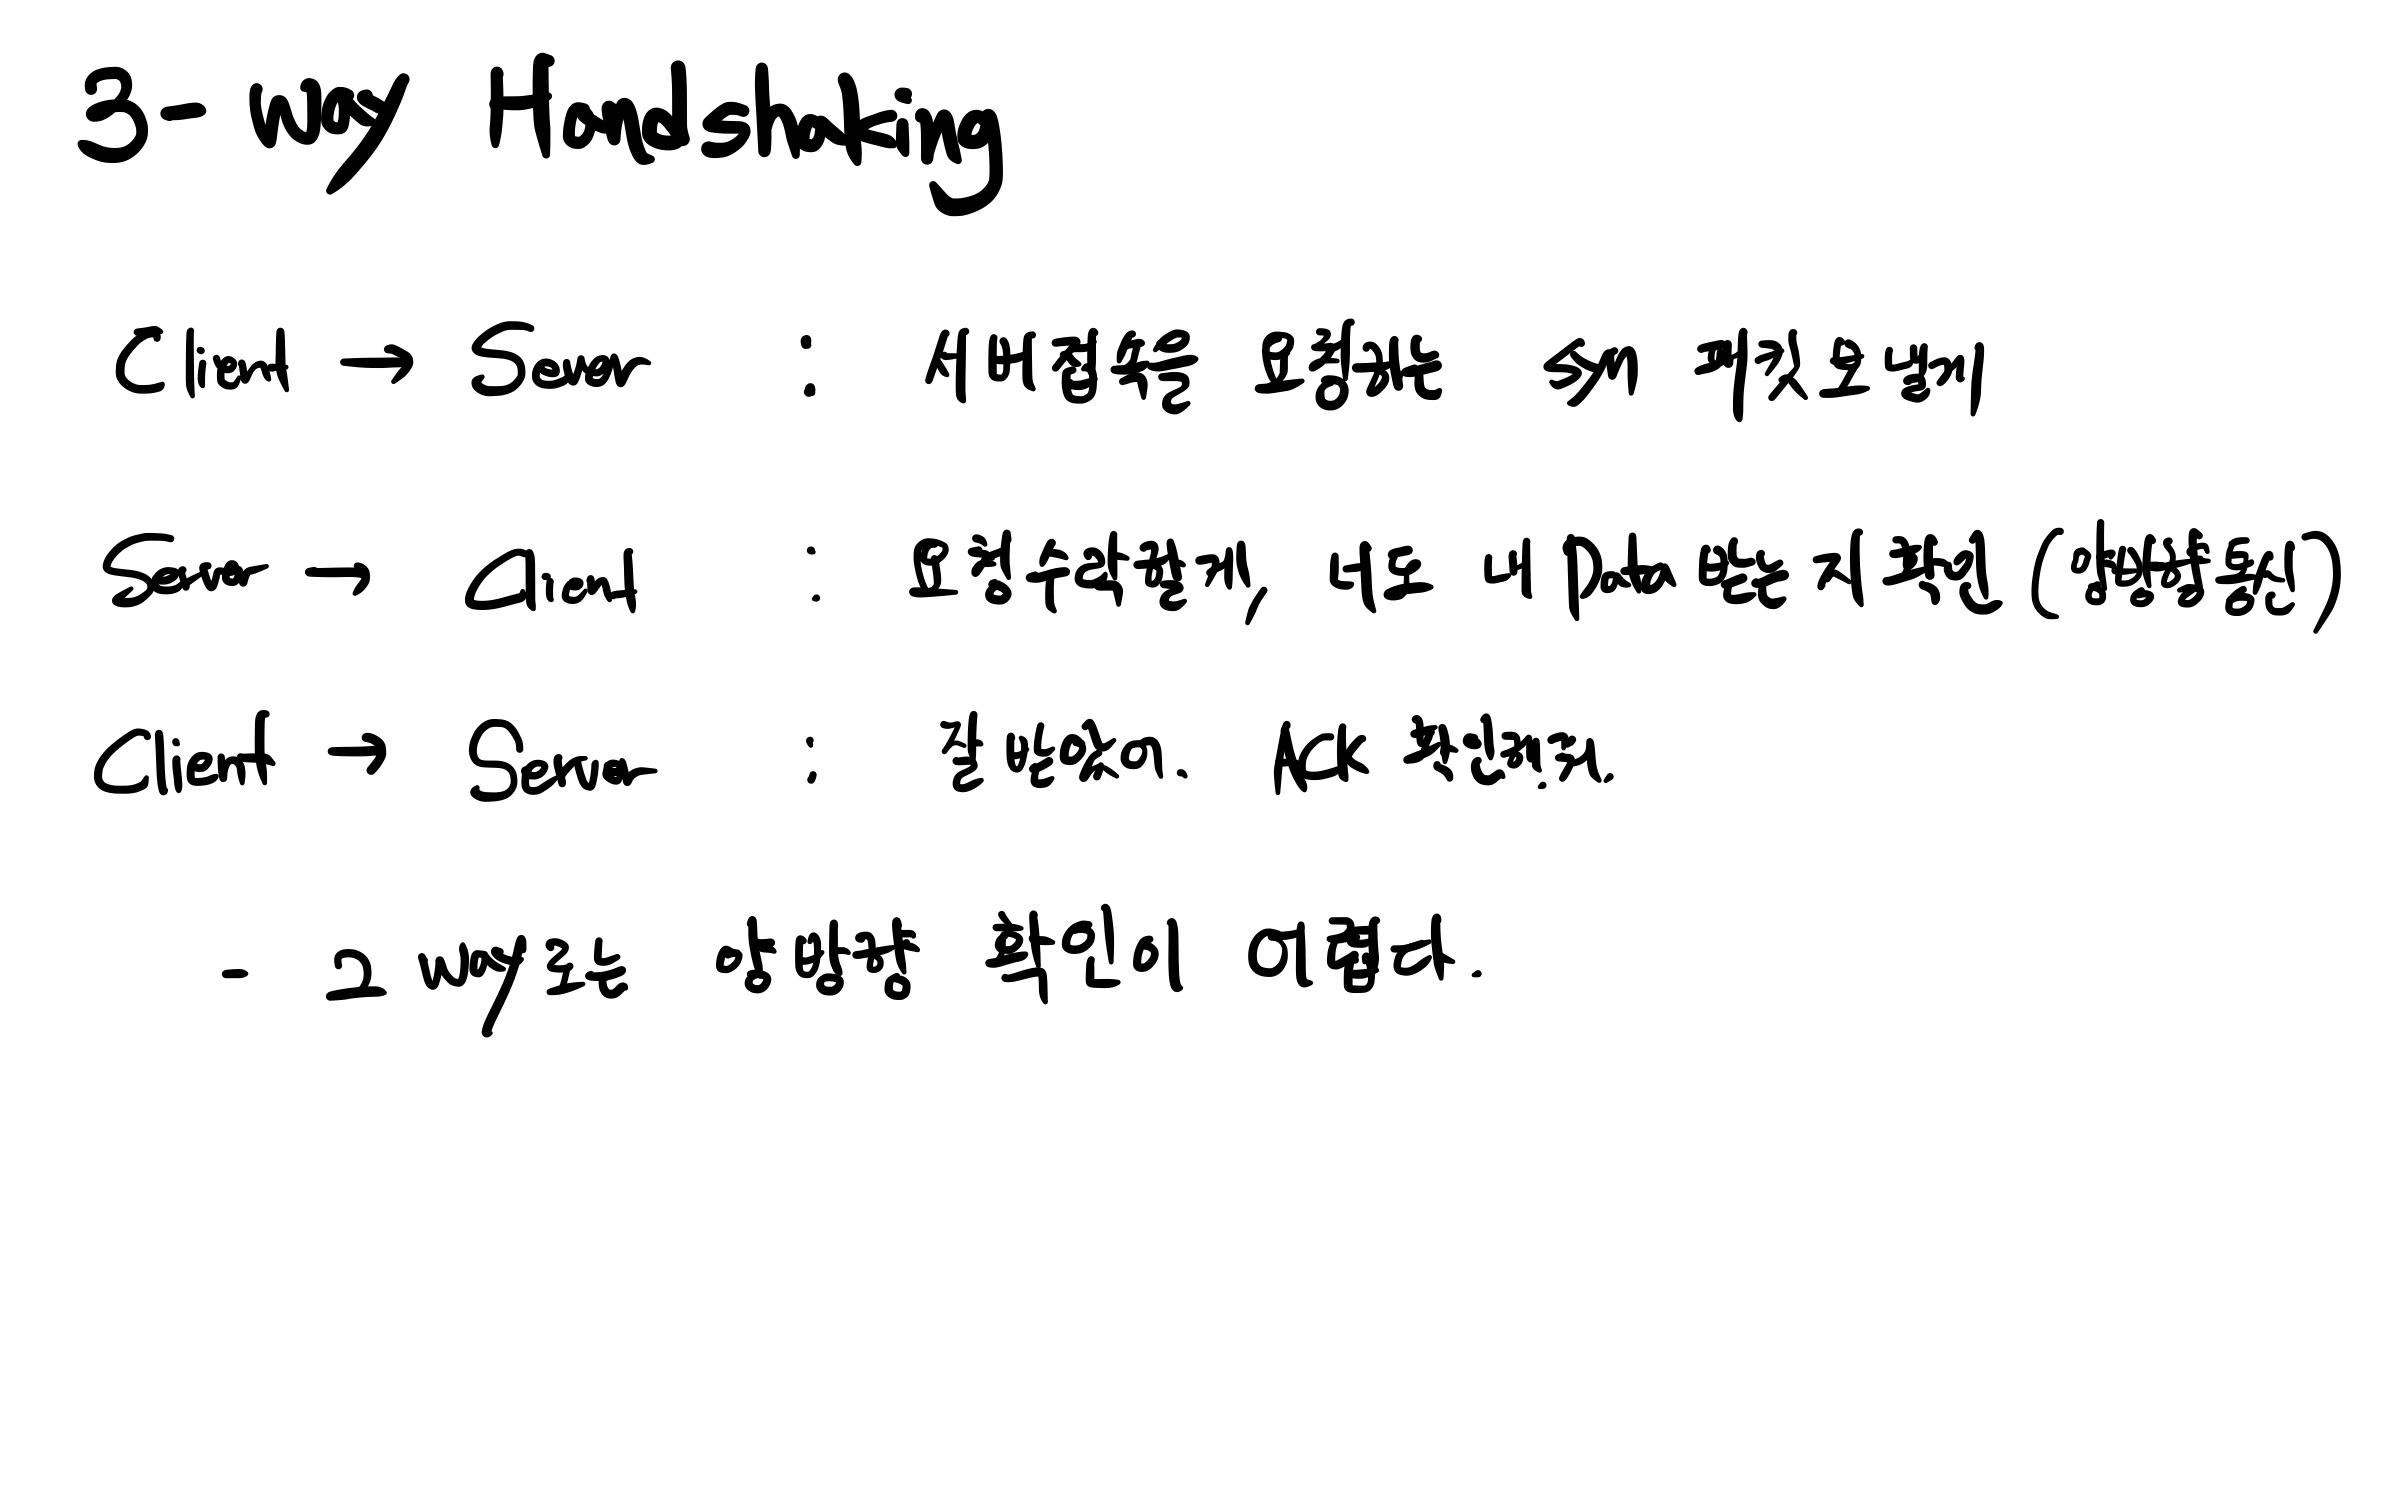 3-way Handshaking
Client → Server : 서버 접속을 요청하는 SYN 패킷 보내기
Server → Client : 요청 수락할게, 너도 내 Data 받는지 확인 (양방향통신)
Client → Server : 잘 받았어. ACK 확인해.
- 2 way로는 양방향 확인이 어렵다.